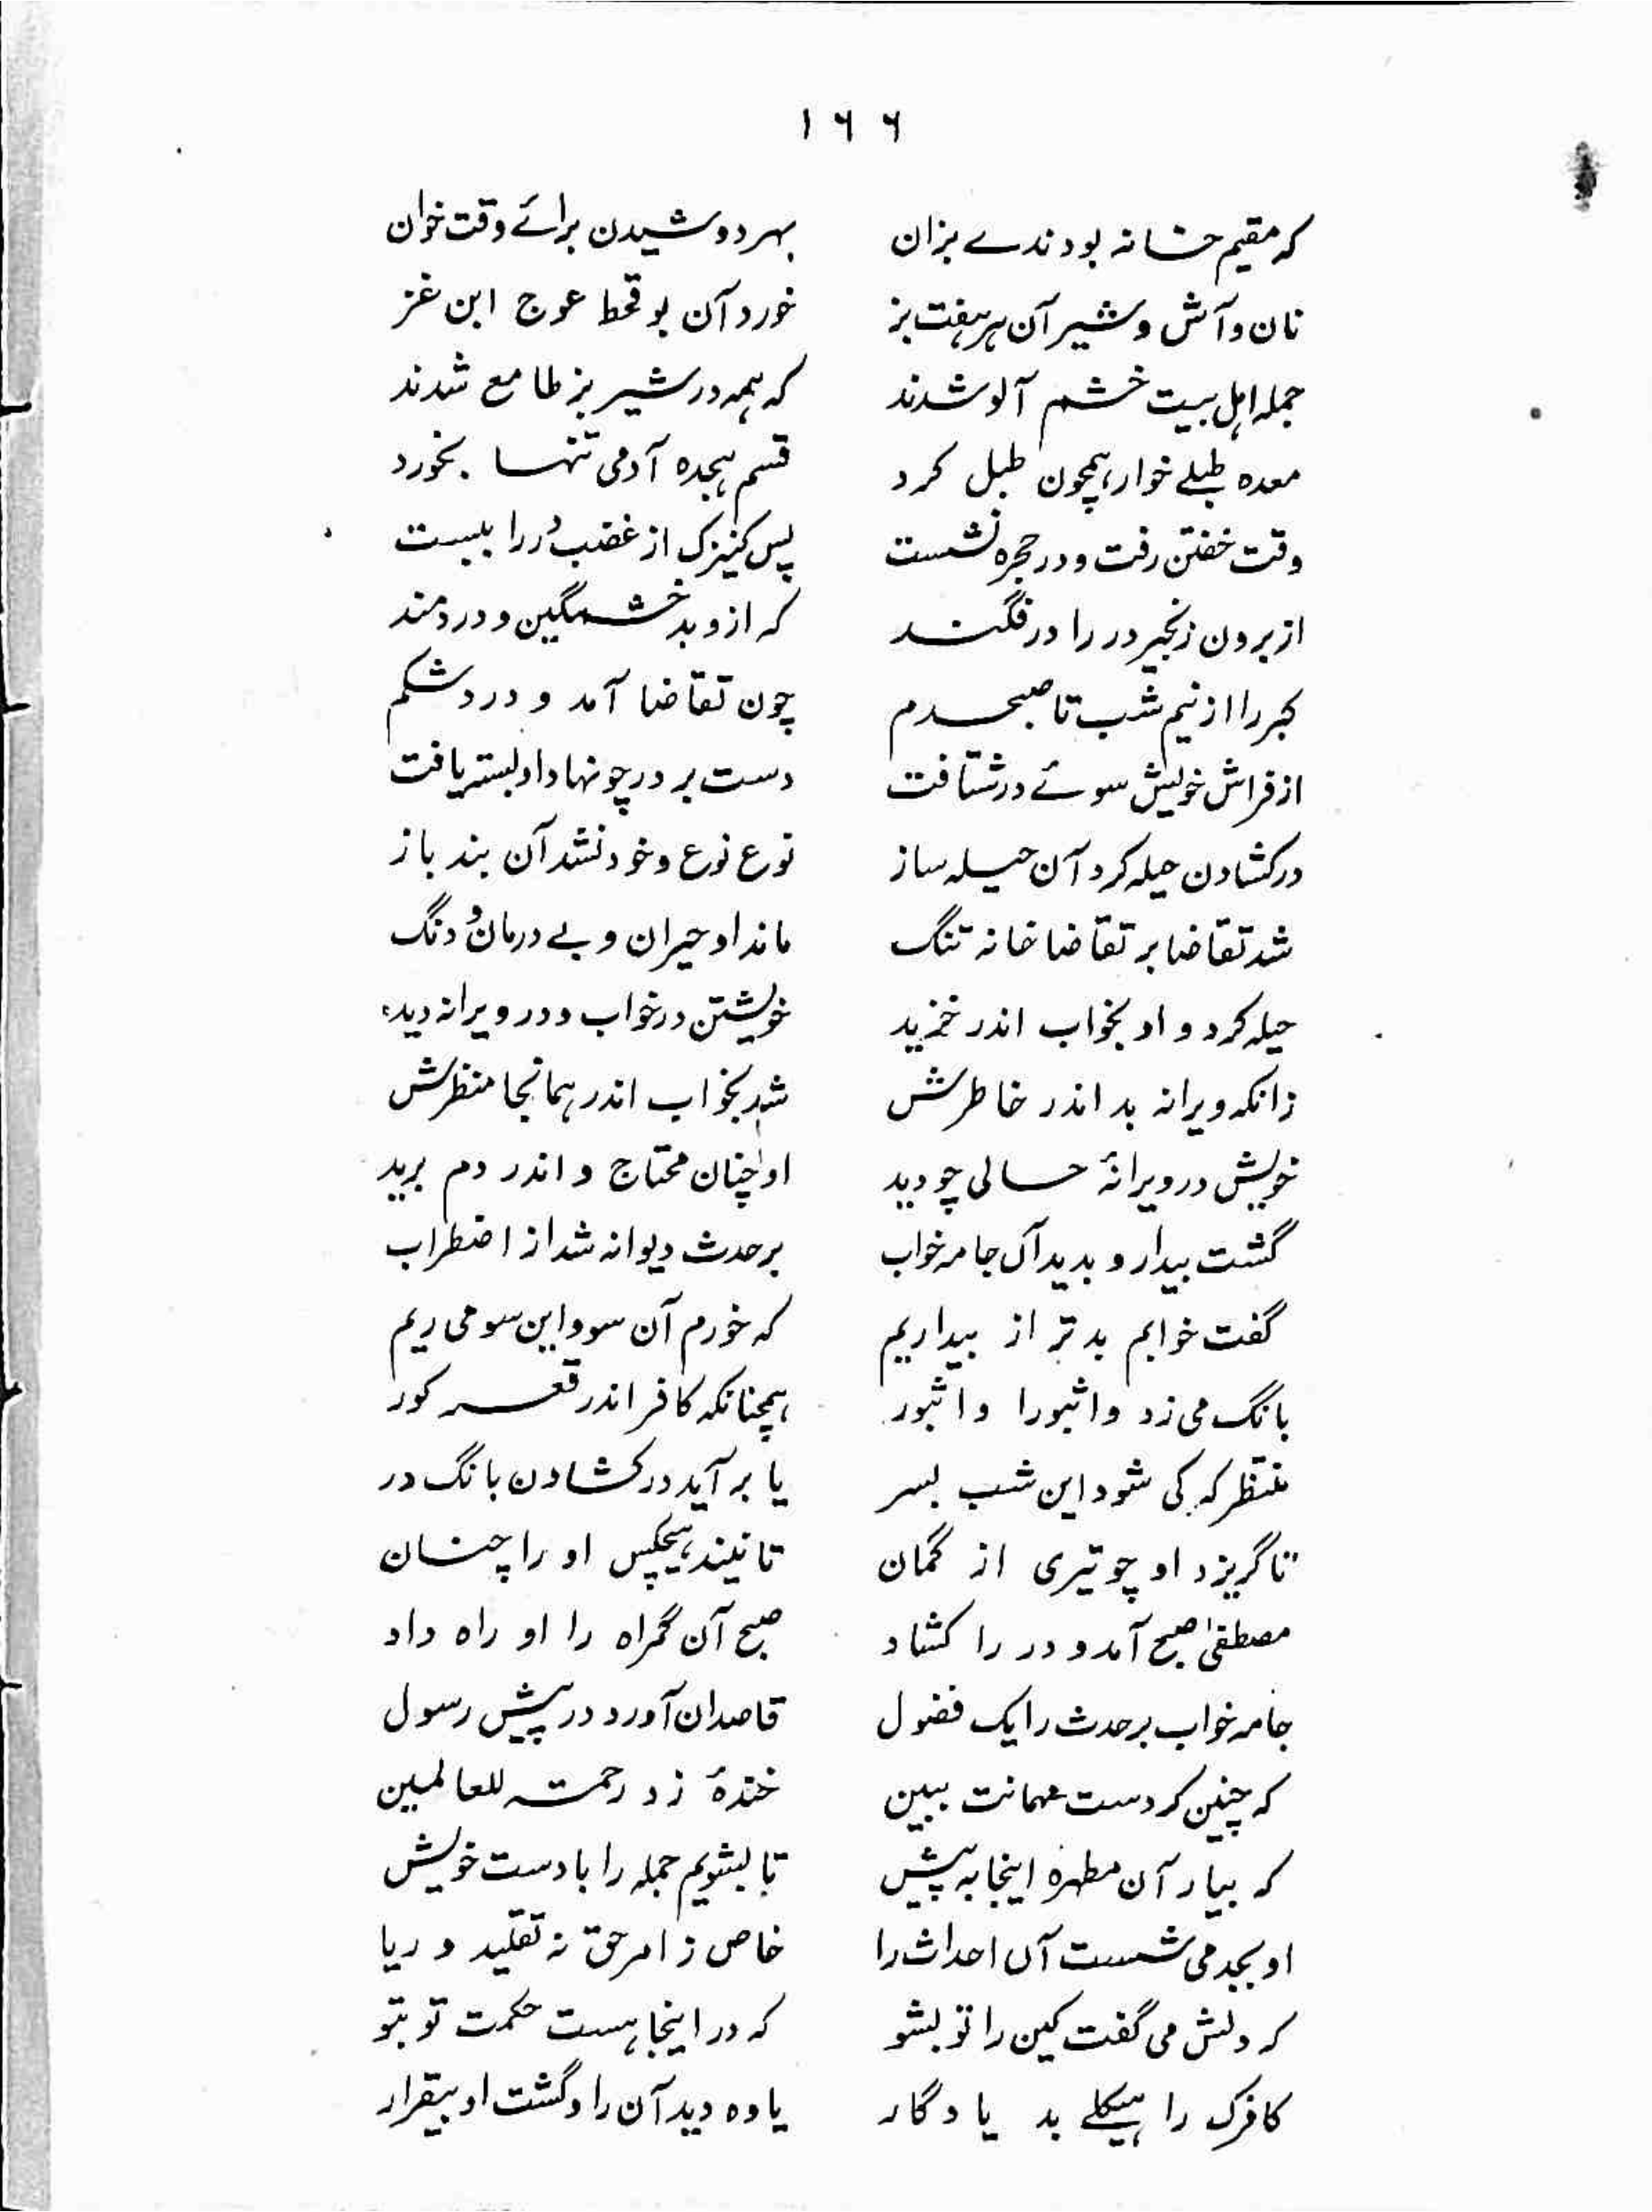 ۱۶۶
که مقیم خانه بودندے بزان بهر دوشیدن برائے وقت خوان
نان و آش و شیر آن هر هفت بز خورد آن بو قحط عوج ابن غز
جمله اهل بیت خشم آلو شدند که همه در شیر بز طامع شدند
معده طبلے خوار همچون طبل کرد قسم هجده آدمی تنها بخورد
وقت خفتن رفت و در حجره نشست پس کنیزک از غضب در را ببست
از برون زنجیر در را در فگند که ازو بد خشمگین و دردمند
گبر را از نیم شب تا صبحدم چون تقاضا آمد و درد شکم
از فراش خویش سوئے در شتافت دست بر در چو نهاد او بسته یافت
در کشادن حیله کرد آن حیله ساز نوع نوع و خود نشد آن بند باز
شد تقاضا بر تقاضا خانه تنگ ماند او حیران و بے درمان و دنگ
حیله کرد و او بخواب اندر خزید خویشتن در خواب و در ویرانه دید
زانکه ویرانه بد اندر خاطرش شد بخواب اندر همانجا منظرش
خویش در ویرانهٔ خالی چو دید او چنان محتاج و اندر دم برید
گشت بیدار و بدید آں جامه خواب پر حدث دیوانه شد از اضطراب
گفت خوابم بدتر از بیداریم که خورم آن سو و این سو می ریم
بانگ می زد وا ثبورا وا ثبور همچنانکه کافر اندر قعر گور
منتظر که کی شود این شب بسر یا بر آید در کشادن بانگ در
تا گریزد او چو تیری از کمان تا نبیند هیچکس او را چنان
مصطفیٰ صبح آمد و در را کشاد صبح آن گمراه را او راه داد
جامه خواب پر حدث را یک فضول قاصدان آورد در پیش رسول
که چنین کردست مهمانت ببین خندهٔ زد رحمة للعالمین
که بیار آن مطهره اینجا به پیش تا بشویم جمله را با دست خویش
او بجد می شست آں احداث را خاص ز امر حق نه تقلید و ریا
که دلش می گفت کین را تو بشو که در اینجا هست حکمت تو بتو
کافرک را هیکلے بد یادگار یاوه دید آن را و گشت او بیقرار